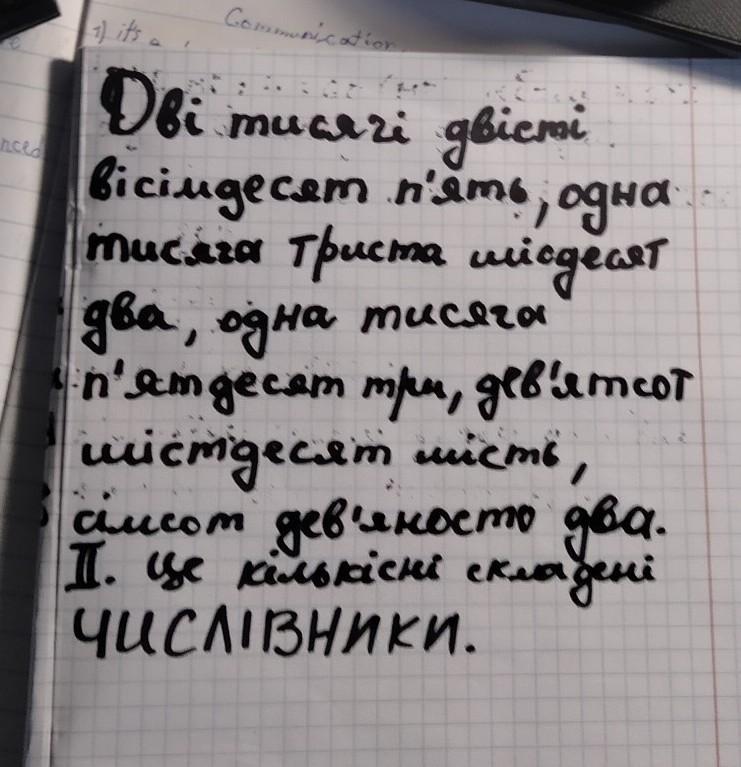 Communication
1) it's a
nced
Дві тисячі двісті
вісімдесят п'ять, одна
тисяча триста шісдесят
два, одна тисяча
п'ятдесят три, дев'ятсот
шістдесят шість,
сімсот дев'яносто два.
II. Це кількісні складені
ЧИСЛІВНИКИ.